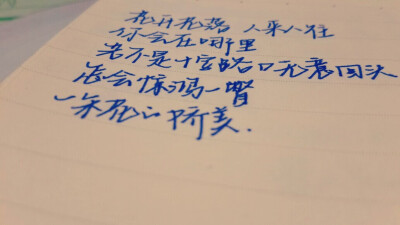 花开花落 人来人往
你会在哪里
若不是十字路口无意回头
怎会惊鸿一瞥
一朵花的娇美.